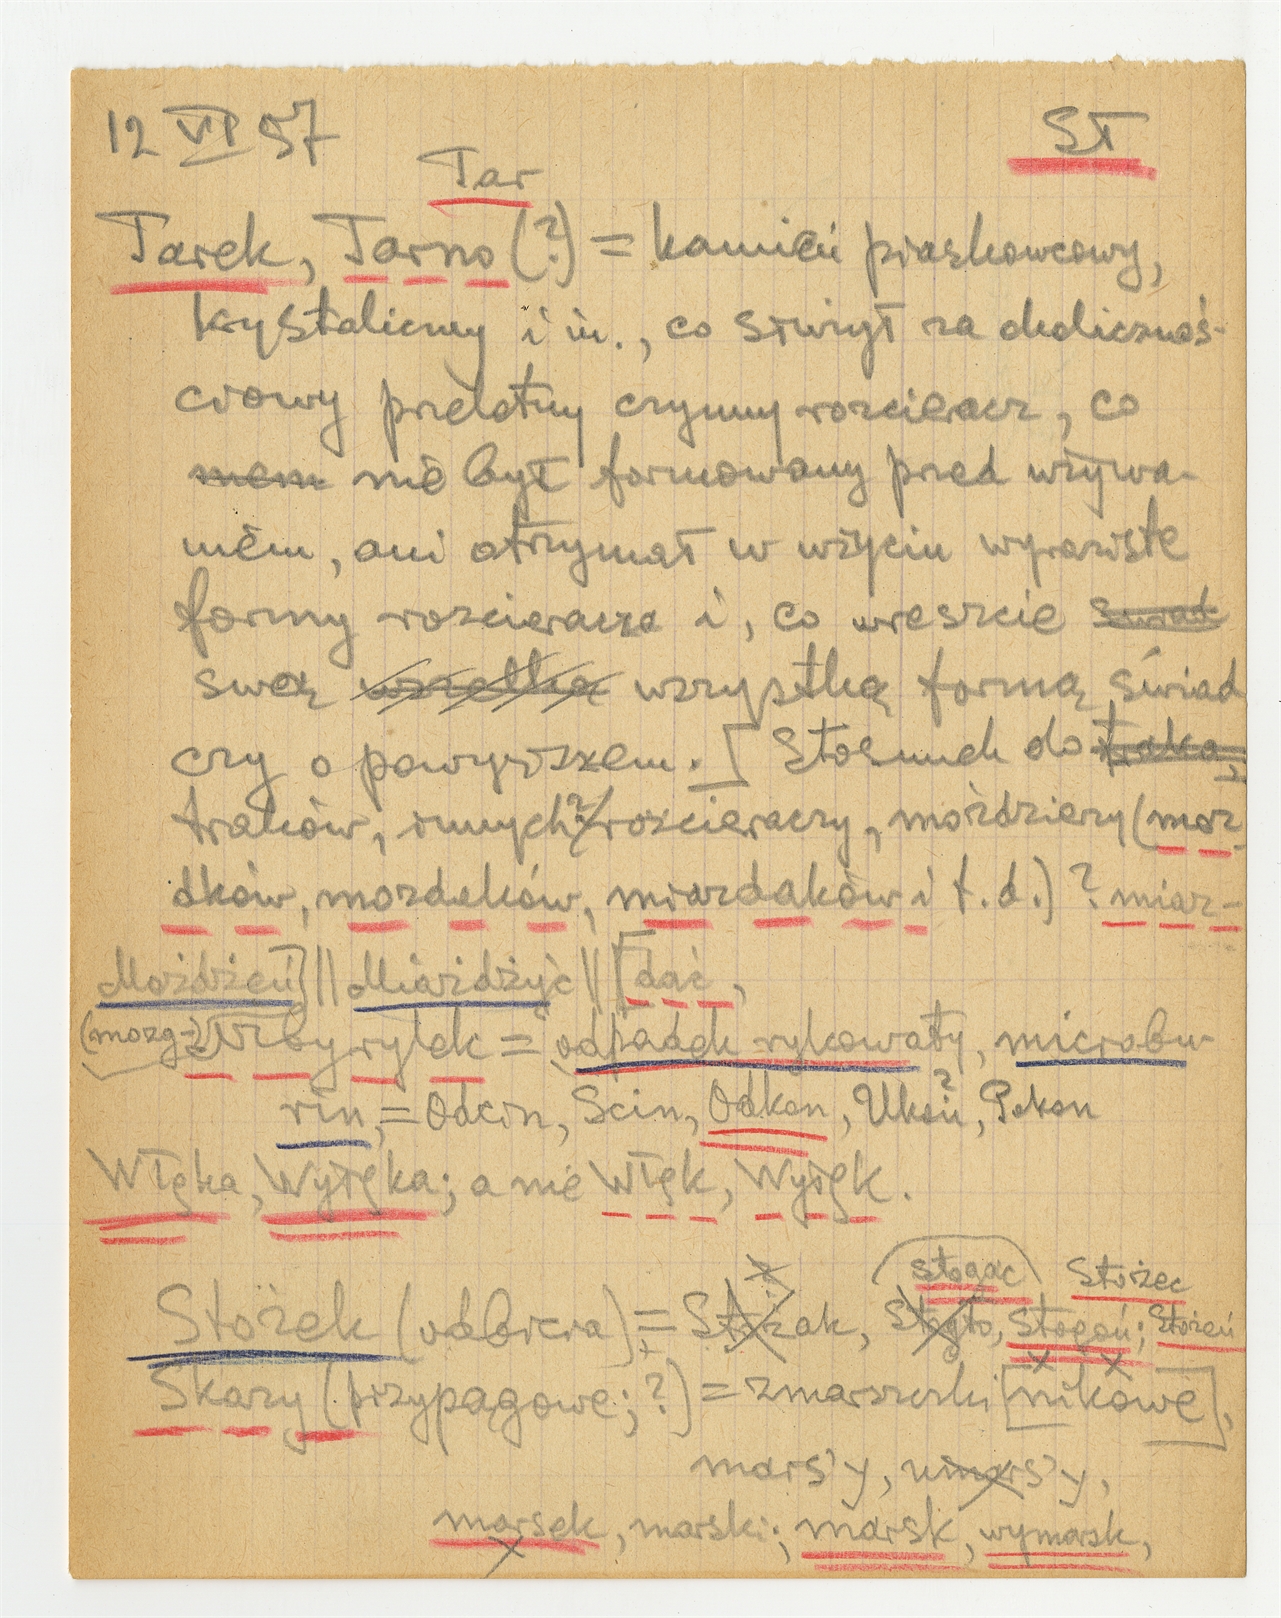 12 VI 57
ST
Tar
Tarek, Tarno (?) = kamień piaskowcowy,
krystaliczny i in., co służył za okolicznoś-
ciowy przelotny czynny rozcieracz, co
nie był formowany przed używa-
niem, ani otrzymał w użyciu wyraziste
formy rozcieracza i, co wreszcie
swą wszystką formą świad
czy o powyższem. [Stosunek do
traków, innych? rozcieraczy, moździerzy (moz
dków, mozdeków, miazdaków i t.d.) ? miaz-
Możdżeń] || Miażdżyć || [dać,
(mozg-?) Wrby rylek = odpadek rylkowaty, microbu-
rin, = Odcin, Scin, Odkon, Ukoń?, Pokon
Włęka, Wyłęka; a nie Włęk, Wyłęk.
stogac Stożec
Stożek (odbicia) = Stożak, Stogto, Stogoń; Stożeń
Skazy (przypągowe; ?) = zmarszczki [nikowe],
mars'y, umars'y,
marsek, marski; marsk, wymarsk,